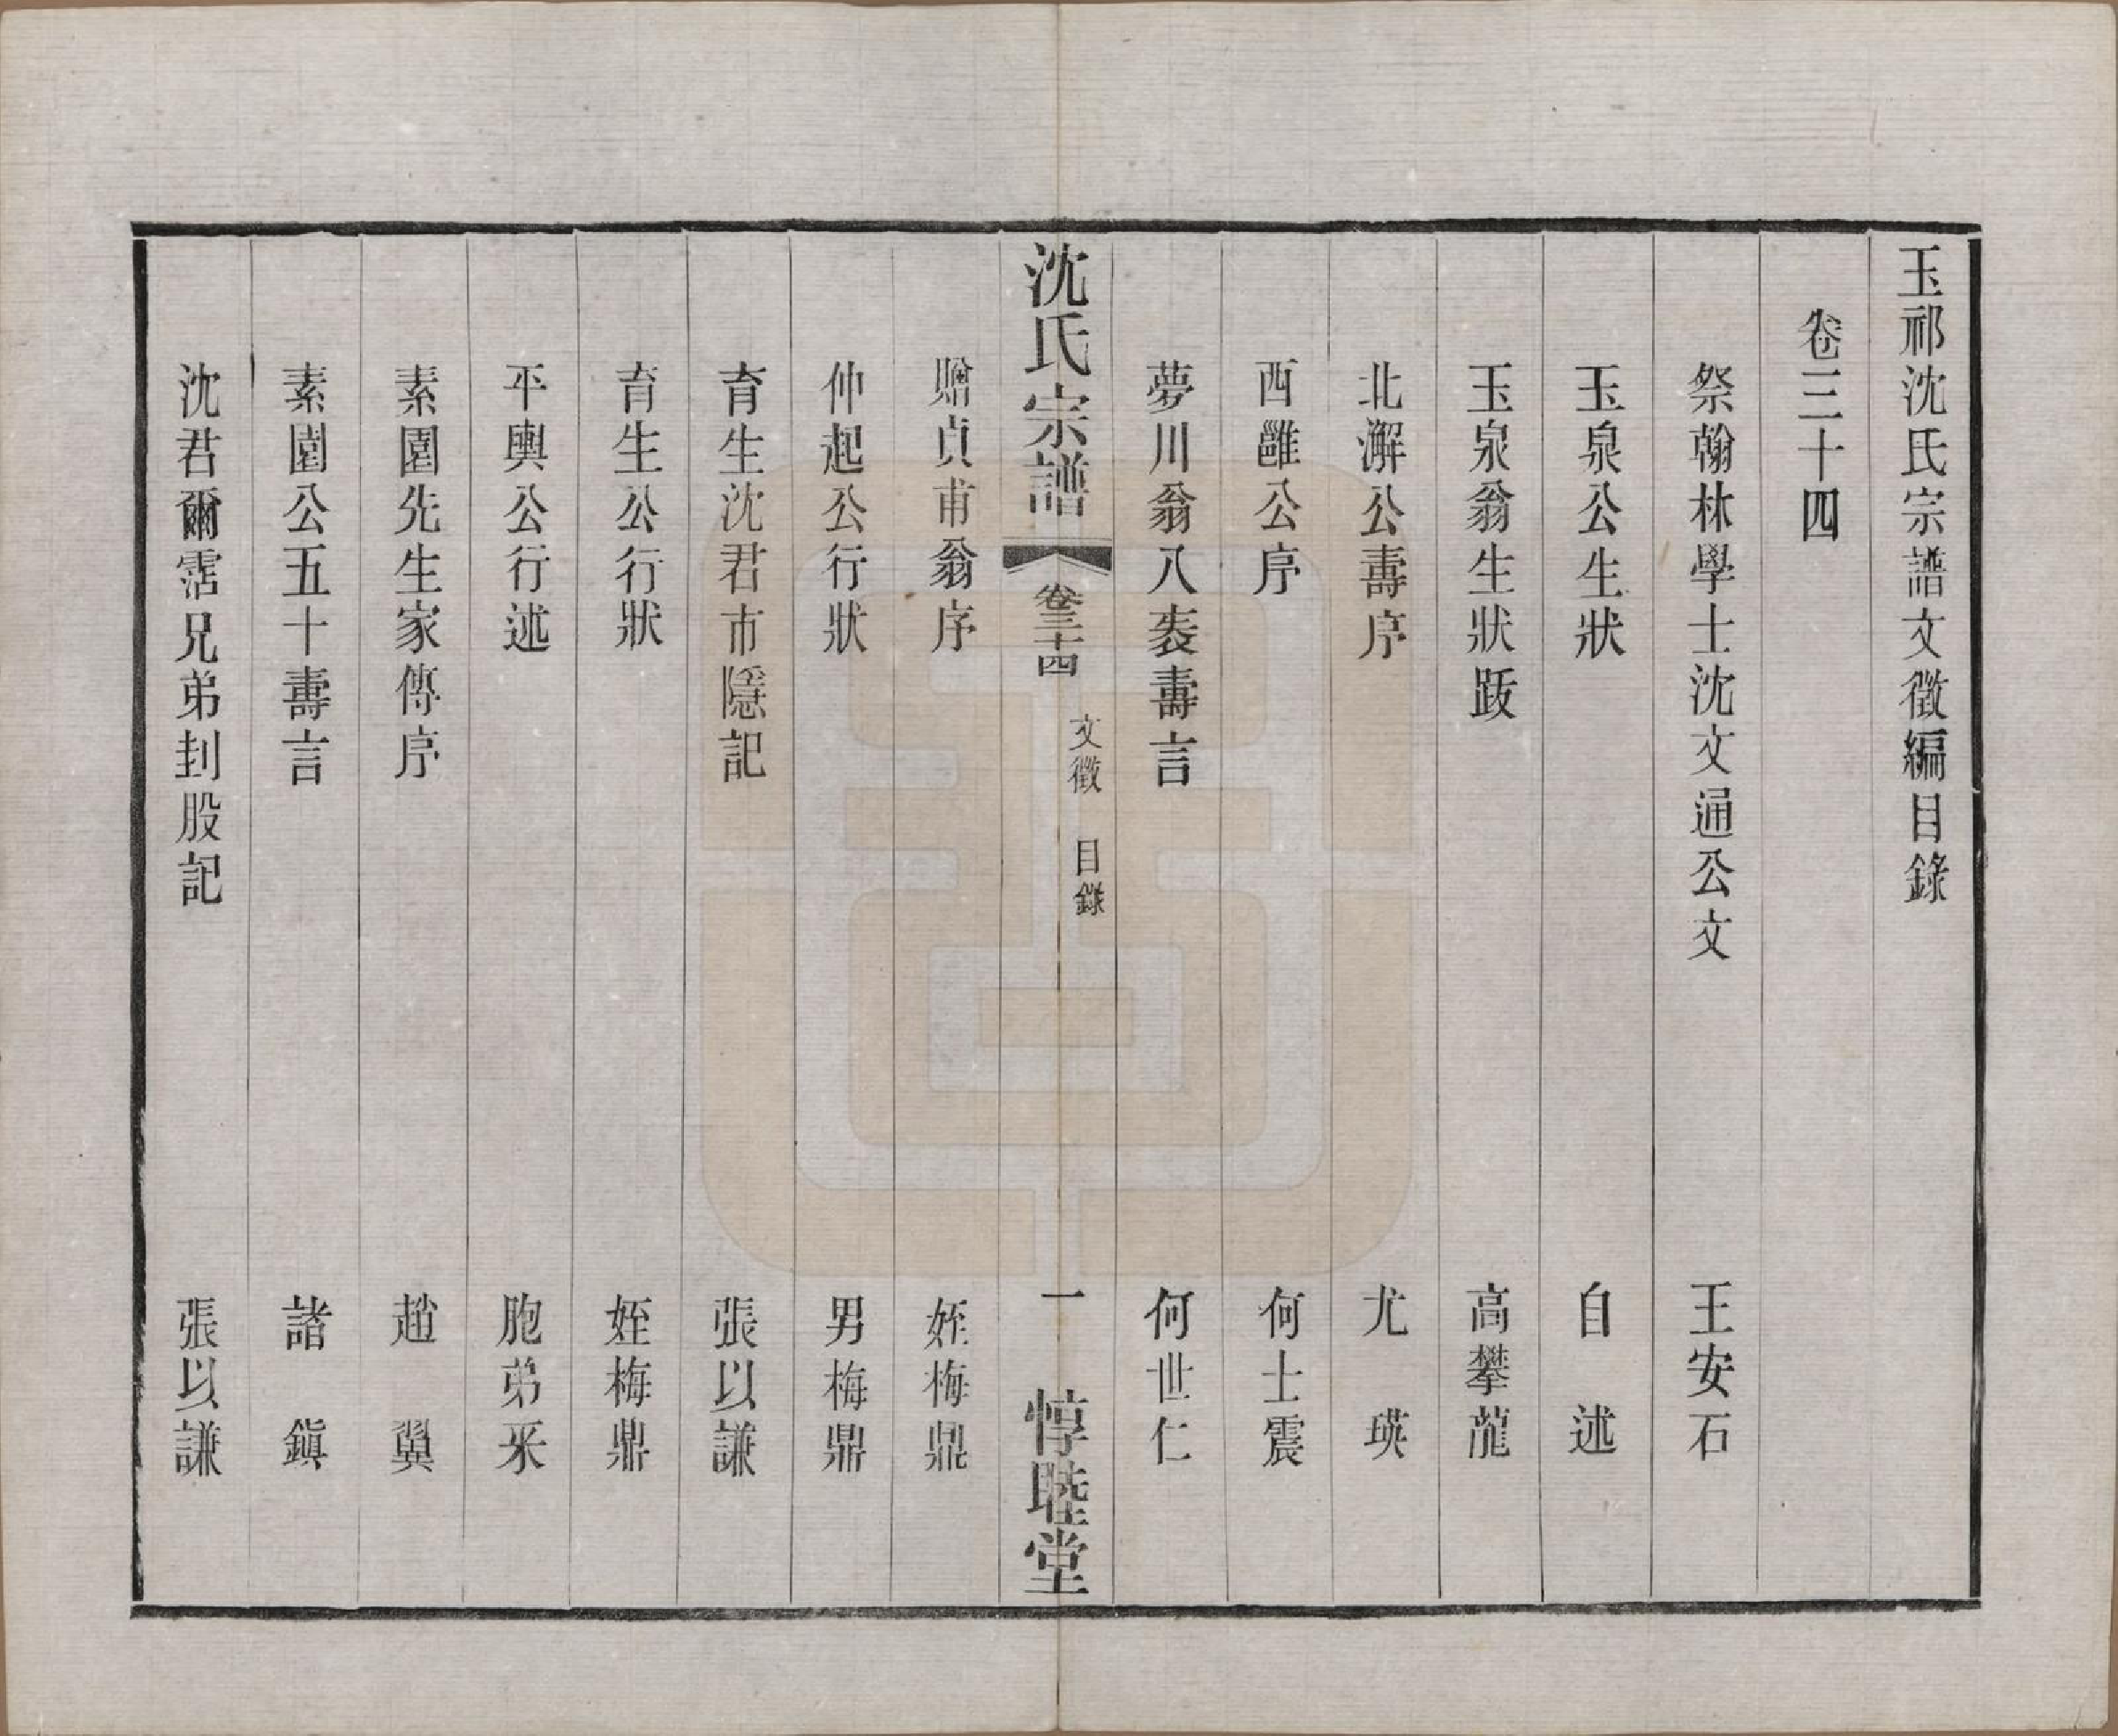 玉祁沈氏宗譜文徵編目錄
卷三十四
祭翰林學士沈文通公文 王安石
玉泉公生狀 自述
玉泉翁生狀跋 高攀龍
北澥公壽序 尤瑛
西雝公序 何士震
夢川翁八袠壽言 何世仁
沈氏宗譜 卷三十四 文徵 目錄 一 惇睦堂
贈貞甫翁序 姪梅鼎
仲起公行狀 男梅鼎
育生沈君市隱記 張以謙
育生公行狀 姪梅鼎
平輿公行述 胞弟釆
素園先生家傳序 趙翼
素園公五十壽言 諸鎮
沈君爾霑兄弟刲股記 張以謙